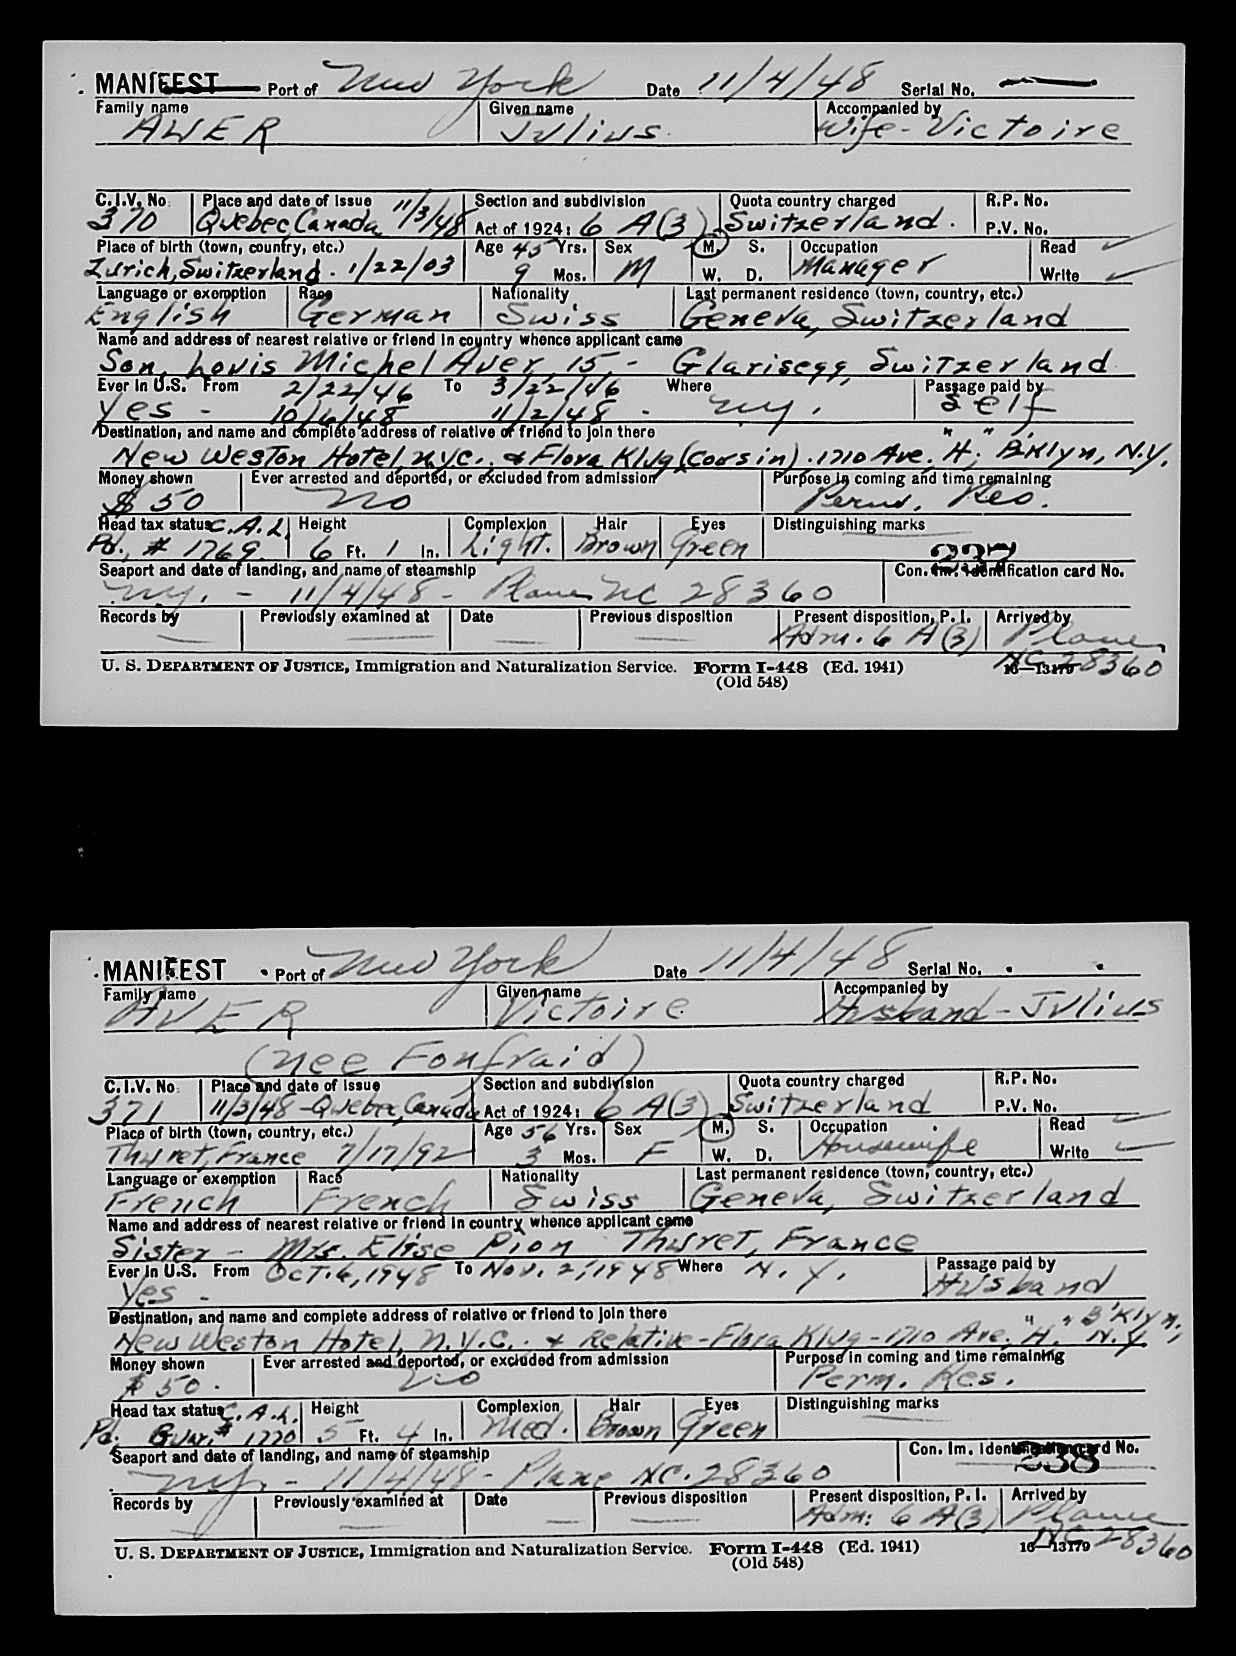 MANIFEST Port of New York Date 11/4/48 Serial No.
Family name Given name Accompanied by
AUER Julius Wife - Victoire
C.I.V. No. Place and date of issue 11/3/48 Section and subdivision Quota country charged R.P. No.
370 Quebec, Canada Act of 1924: 6 A(3) Switzerland. P.V. No.
Place of birth (town, country, etc.) Age 45 Yrs. Sex M. S. Occupation Read ✓
Zurich, Switzerland. 1/22/03 9 Mos. M W. D. Manager Write ✓
Language or exemption Race Nationality Last permanent residence (town, country, etc.)
English German Swiss Geneva, Switzerland
Name and address of nearest relative or friend in country whence applicant came
Son, Louis Michel Auer, 15 - Glarisegg, Switzerland
Ever in U.S. From 2/22/46 To 3/22/46 Where Passage paid by
Yes - 10/6/48 11/2/48 - NY. Self
Destination, and name and complete address of relative or friend to join there
New Weston Hotel, N.Y.C. & Flora Klug (cousin). 1710 Ave. "H", B'Klyn, N.Y.
Money shown Ever arrested and deported, or excluded from admission Purpose in coming and time remaining
$50 No Perm. Res.
Head tax status C.A.L. Height Complexion Hair Eyes Distinguishing marks
Pd. # 1769 6 Ft. 1 In. Light. Brown Green
237
Seaport and date of landing, and name of steamship Con. Im. Identification card No.
N.Y. - 11/4/48 - Plane NC 28360
Records by Previously examined at Date Previous disposition Present disposition, P. I. Arrived by
Adm. 6 A(3) Plane
NC 28360
U. S. DEPARTMENT OF JUSTICE, Immigration and Naturalization Service. Form I-448 (Ed. 1941) 16—13179
(Old 548)
MANIFEST Port of New York Date 11/4/48 Serial No.
Family name Given name Accompanied by
AUER Victoire Husband - Julius
(nee Fonfraid)
C.I.V. No. Place and date of issue Section and subdivision Quota country charged R.P. No.
371 11/3/48 - Quebec, Canada Act of 1924: 6 A(3) Switzerland P.V. No.
Place of birth (town, country, etc.) Age 56 Yrs. Sex M. S. Occupation Read ✓
Thuret, France 7/17/92 3 Mos. F W. D. Housewife Write ✓
Language or exemption Race Nationality Last permanent residence (town, country, etc.)
French French Swiss Geneva, Switzerland
Name and address of nearest relative or friend in country whence applicant came
Sister - Mrs. Elise Pion Thuret, France
Ever in U.S. From Oct. 6, 1948 To Nov. 2, 1948 Where N.Y. Passage paid by
Yes - Husband
Destination, and name and complete address of relative or friend to join there
New Weston Hotel, N.Y.C. & Relative - Flora Klug - 1710 Ave. "H", B'Klyn, N.Y.
Money shown Ever arrested and deported, or excluded from admission Purpose in coming and time remaining
$50. No Perm. Res.
Head tax status C.A.L. Height Complexion Hair Eyes Distinguishing marks
Pd. Guar. # 1770 5 Ft. 4 In. Med. Brown Green
Seaport and date of landing, and name of steamship Con. Im. Identification card No.
N.Y. - 11/4/48 - Plane NC. 28360 238
Records by Previously examined at Date Previous disposition Present disposition, P. I. Arrived by
Adm. 6 A(3) Plane
NC 28360
U. S. DEPARTMENT OF JUSTICE, Immigration and Naturalization Service. Form I-448 (Ed. 1941) 16—13179
(Old 548)